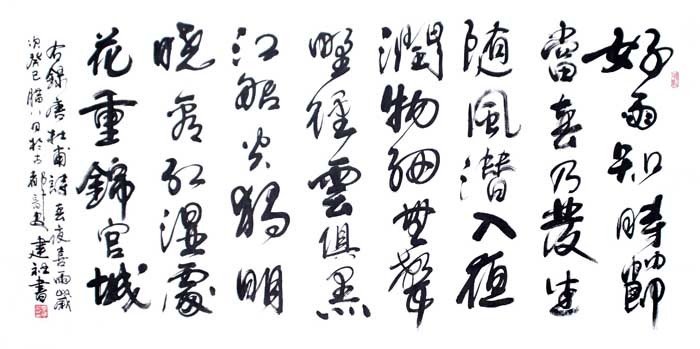 好雨知時節
當春乃發生
随風潛入夜
潤物細無聲
野徑雲俱黑
江船火獨明
曉看紅濕處
花重錦官城
右錄唐杜甫詩春夜喜雨歲
次癸巳臘八日於古都長安建社書